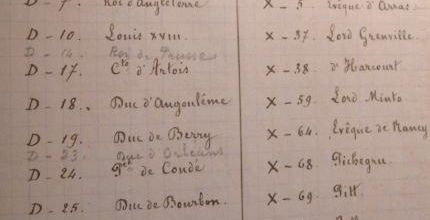 D - 7. Roi d'Angleterre
D - 10. Louis XVIII.
D - 14. Roi de Prusse
D - 17. Cte d'Artois
D - 18. Duc d'Angoulême
D - 19. Duc de Berry
D - 23. Duc d'Orléans
D - 24. Pce de Condé
D - 25. Duc de Bourbon.
X - 5. Evêque d'Arras
X - 37. Lord Grenville.
X - 38. d'Harcourt
X - 59. Lord Minto
X - 64. Evêque de Nancy
X - 68. Pichegru
X - 69. Pitt.